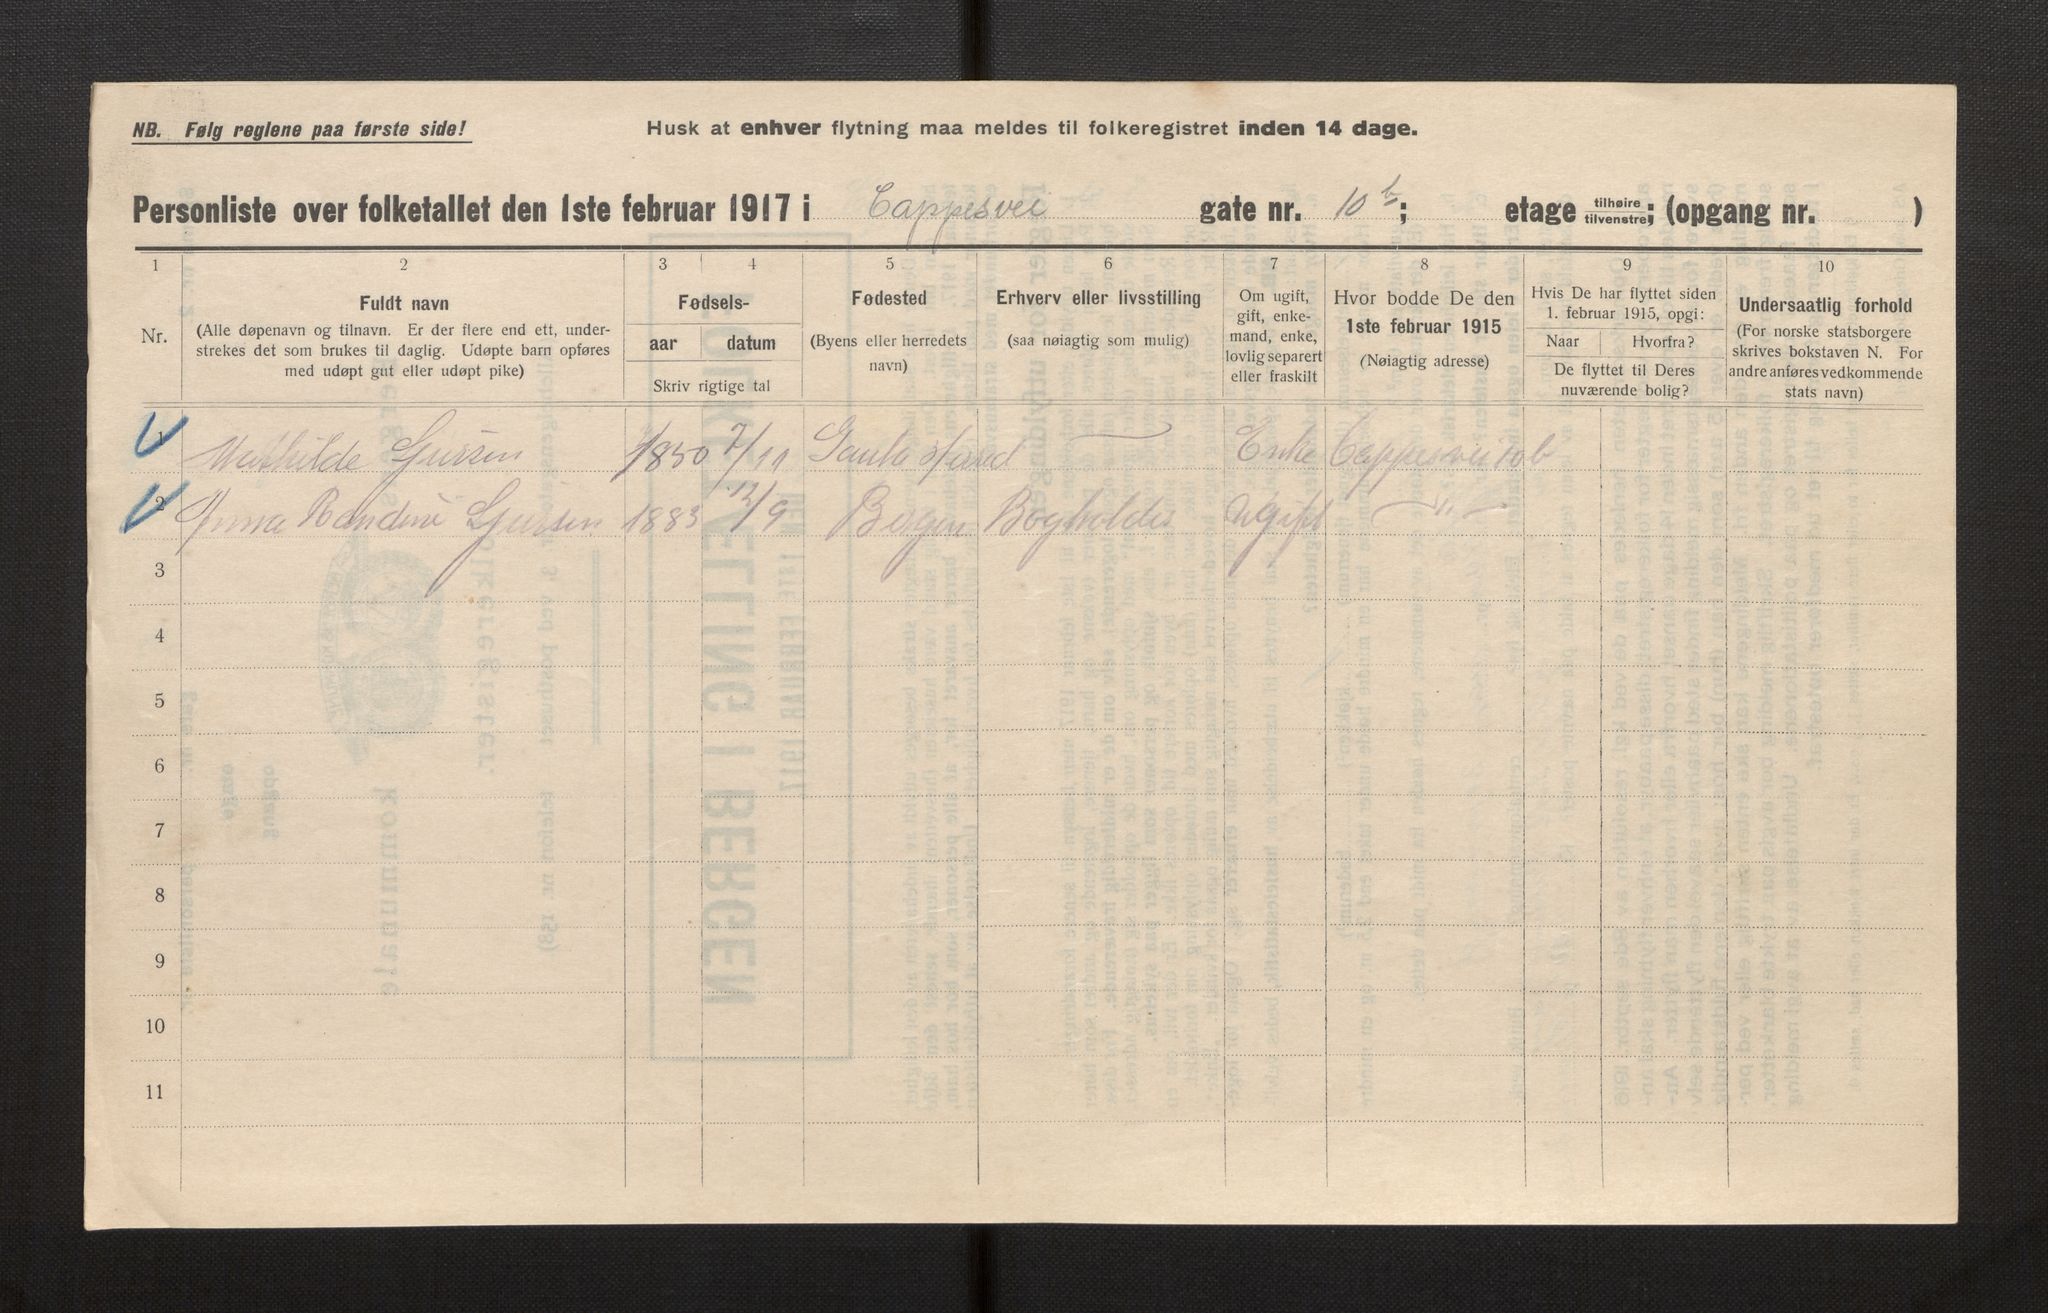 NB. Følg reglene paa første side!
Husk at enhver flytning maa meldes til folkeregistret inden 14 dage.
Personliste over folketallet den 1ste februar 1917 i Cappesvei gate nr. 10 b; etage tilhøire tilvenstre; (opgang nr. )
1 2 3 4 5 6 7 8 9 10
Nr.
Fuldt navn
(Alle døpenavn og tilnavn. Er der flere end ett, under-
strekes det som brukes til daglig. Udøpte barn opføres
med udøpt gut eller udøpt pike)
Fødsels-
aar datum
Skriv rigtige tal
Fødested
(Byens eller herredets
navn)
Erhverv eller livsstilling
(saa nøiagtig som mulig)
Om ugift,
gift, enke-
mand, enke,
lovlig separert
eller fraskilt
Hvor bodde De den
1ste februar 1915
(Nøiagtig adresse)
Hvis De har flyttet siden
1. februar 1915, opgi:
Naar Hvorfra?
De flyttet til Deres
nuværende bolig?
Undersaatlig forhold
(For norske statsborgere
skrives bokstaven N. For
andre anføres vedkommende
stats navn)
1 Mathilde 1850 7/11 Enke Cappesvei 10b
2 Anna Randine 1883 12/9 Bergen Bogholder ugift —"—
3
4
5
6
7
8
9
10
11